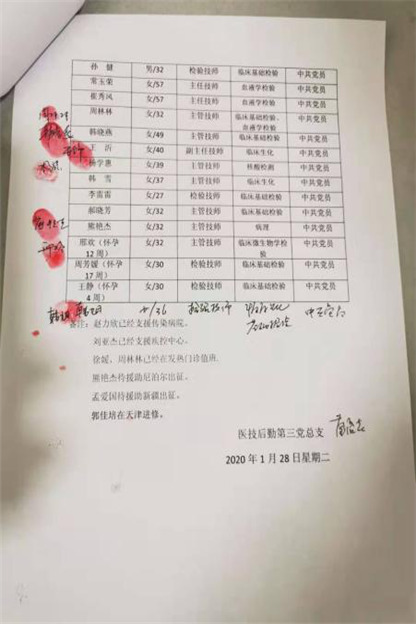 孙 健 男/32 检验技师 临床基础检验 中共党员
常玉荣 女/57 主任技师 血液学检验 中共党员
崔秀凤 女/57 主任技师 血液学检验 中共党员
周林林 女/32 主管技师 临床基础检验、血液学检验 中共党员
韩晓燕 女/49 主管技师 临床基础检验 中共党员
王 沂 女/40 副主任技师 临床生化 中共党员
杨学惠 女/39 主管技师 核酸检测 中共党员
韩 雪 女/37 主管技师 临床生化 中共党员
李雷雷 女/27 检验技师 临床基础检验 中共党员
郝晓芳 女/32 主管技师 临床基础检验 中共党员
熊艳杰 女/32 主管技师 病理 中共党员
邢欢(怀孕 女/32 主管技师 临床微生物学检 中共党员
12 周) 验
周芳媛(怀孕 女/30 检验技师 临床基础检验 中共党员
17 周)
王静(怀孕 女/30 检验技师 临床基础检验 中共党员
4 周)
女/36 检验技师
备注:赵力欣已经支援传染病院。
刘亚杰已经支援疾控中心。
徐媛、周林林已经在发热门诊值班。
熊艳杰待援助尼泊尔出征。
孟爱国待援助新疆出征。
郭佳培在天津进修。
医技后勤第三党总支
2020 年 1 月 28 日星期二